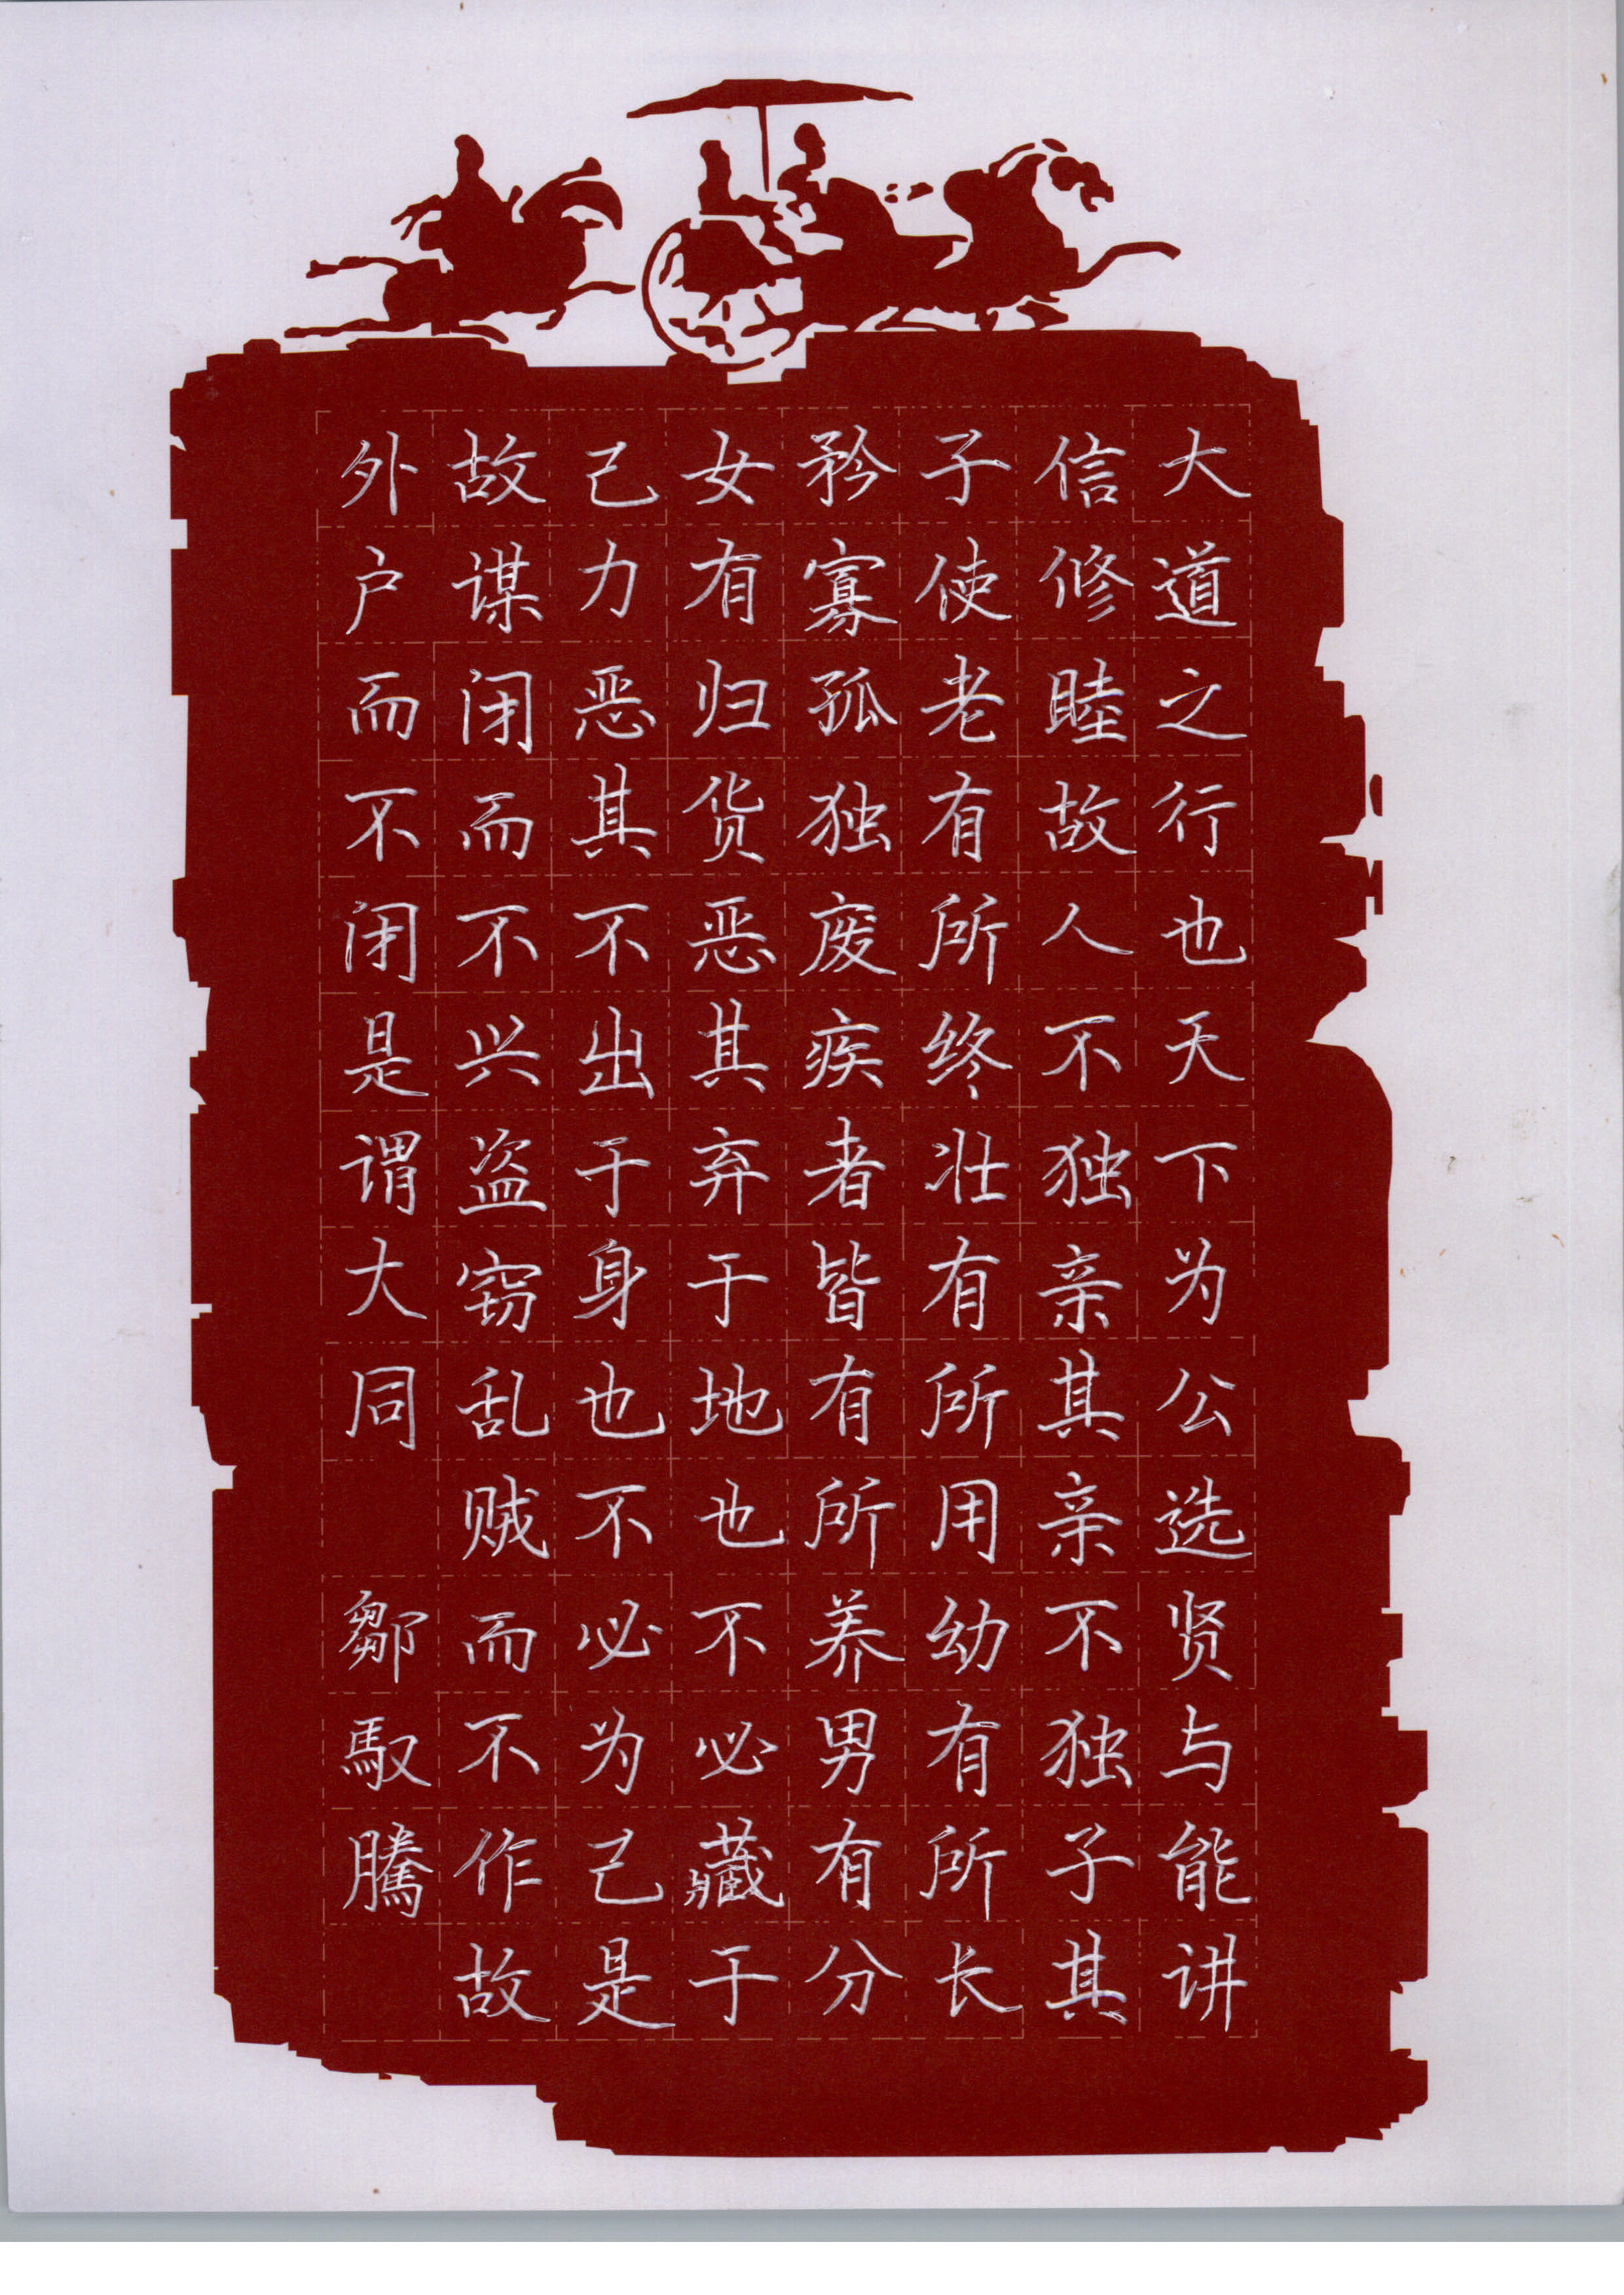 大道之行也天下为公选贤与能讲
信修睦故人不独亲其亲不独子其
子使老有所终壮有所用幼有所长
矜寡孤独废疾者皆有所养男有分
女有归货恶其弃于地也不必藏于
己力恶其不出于身也不必为己是
故谋闭而不兴盗窃乱贼而不作故
外户而不闭是谓大同 鄒馭騰